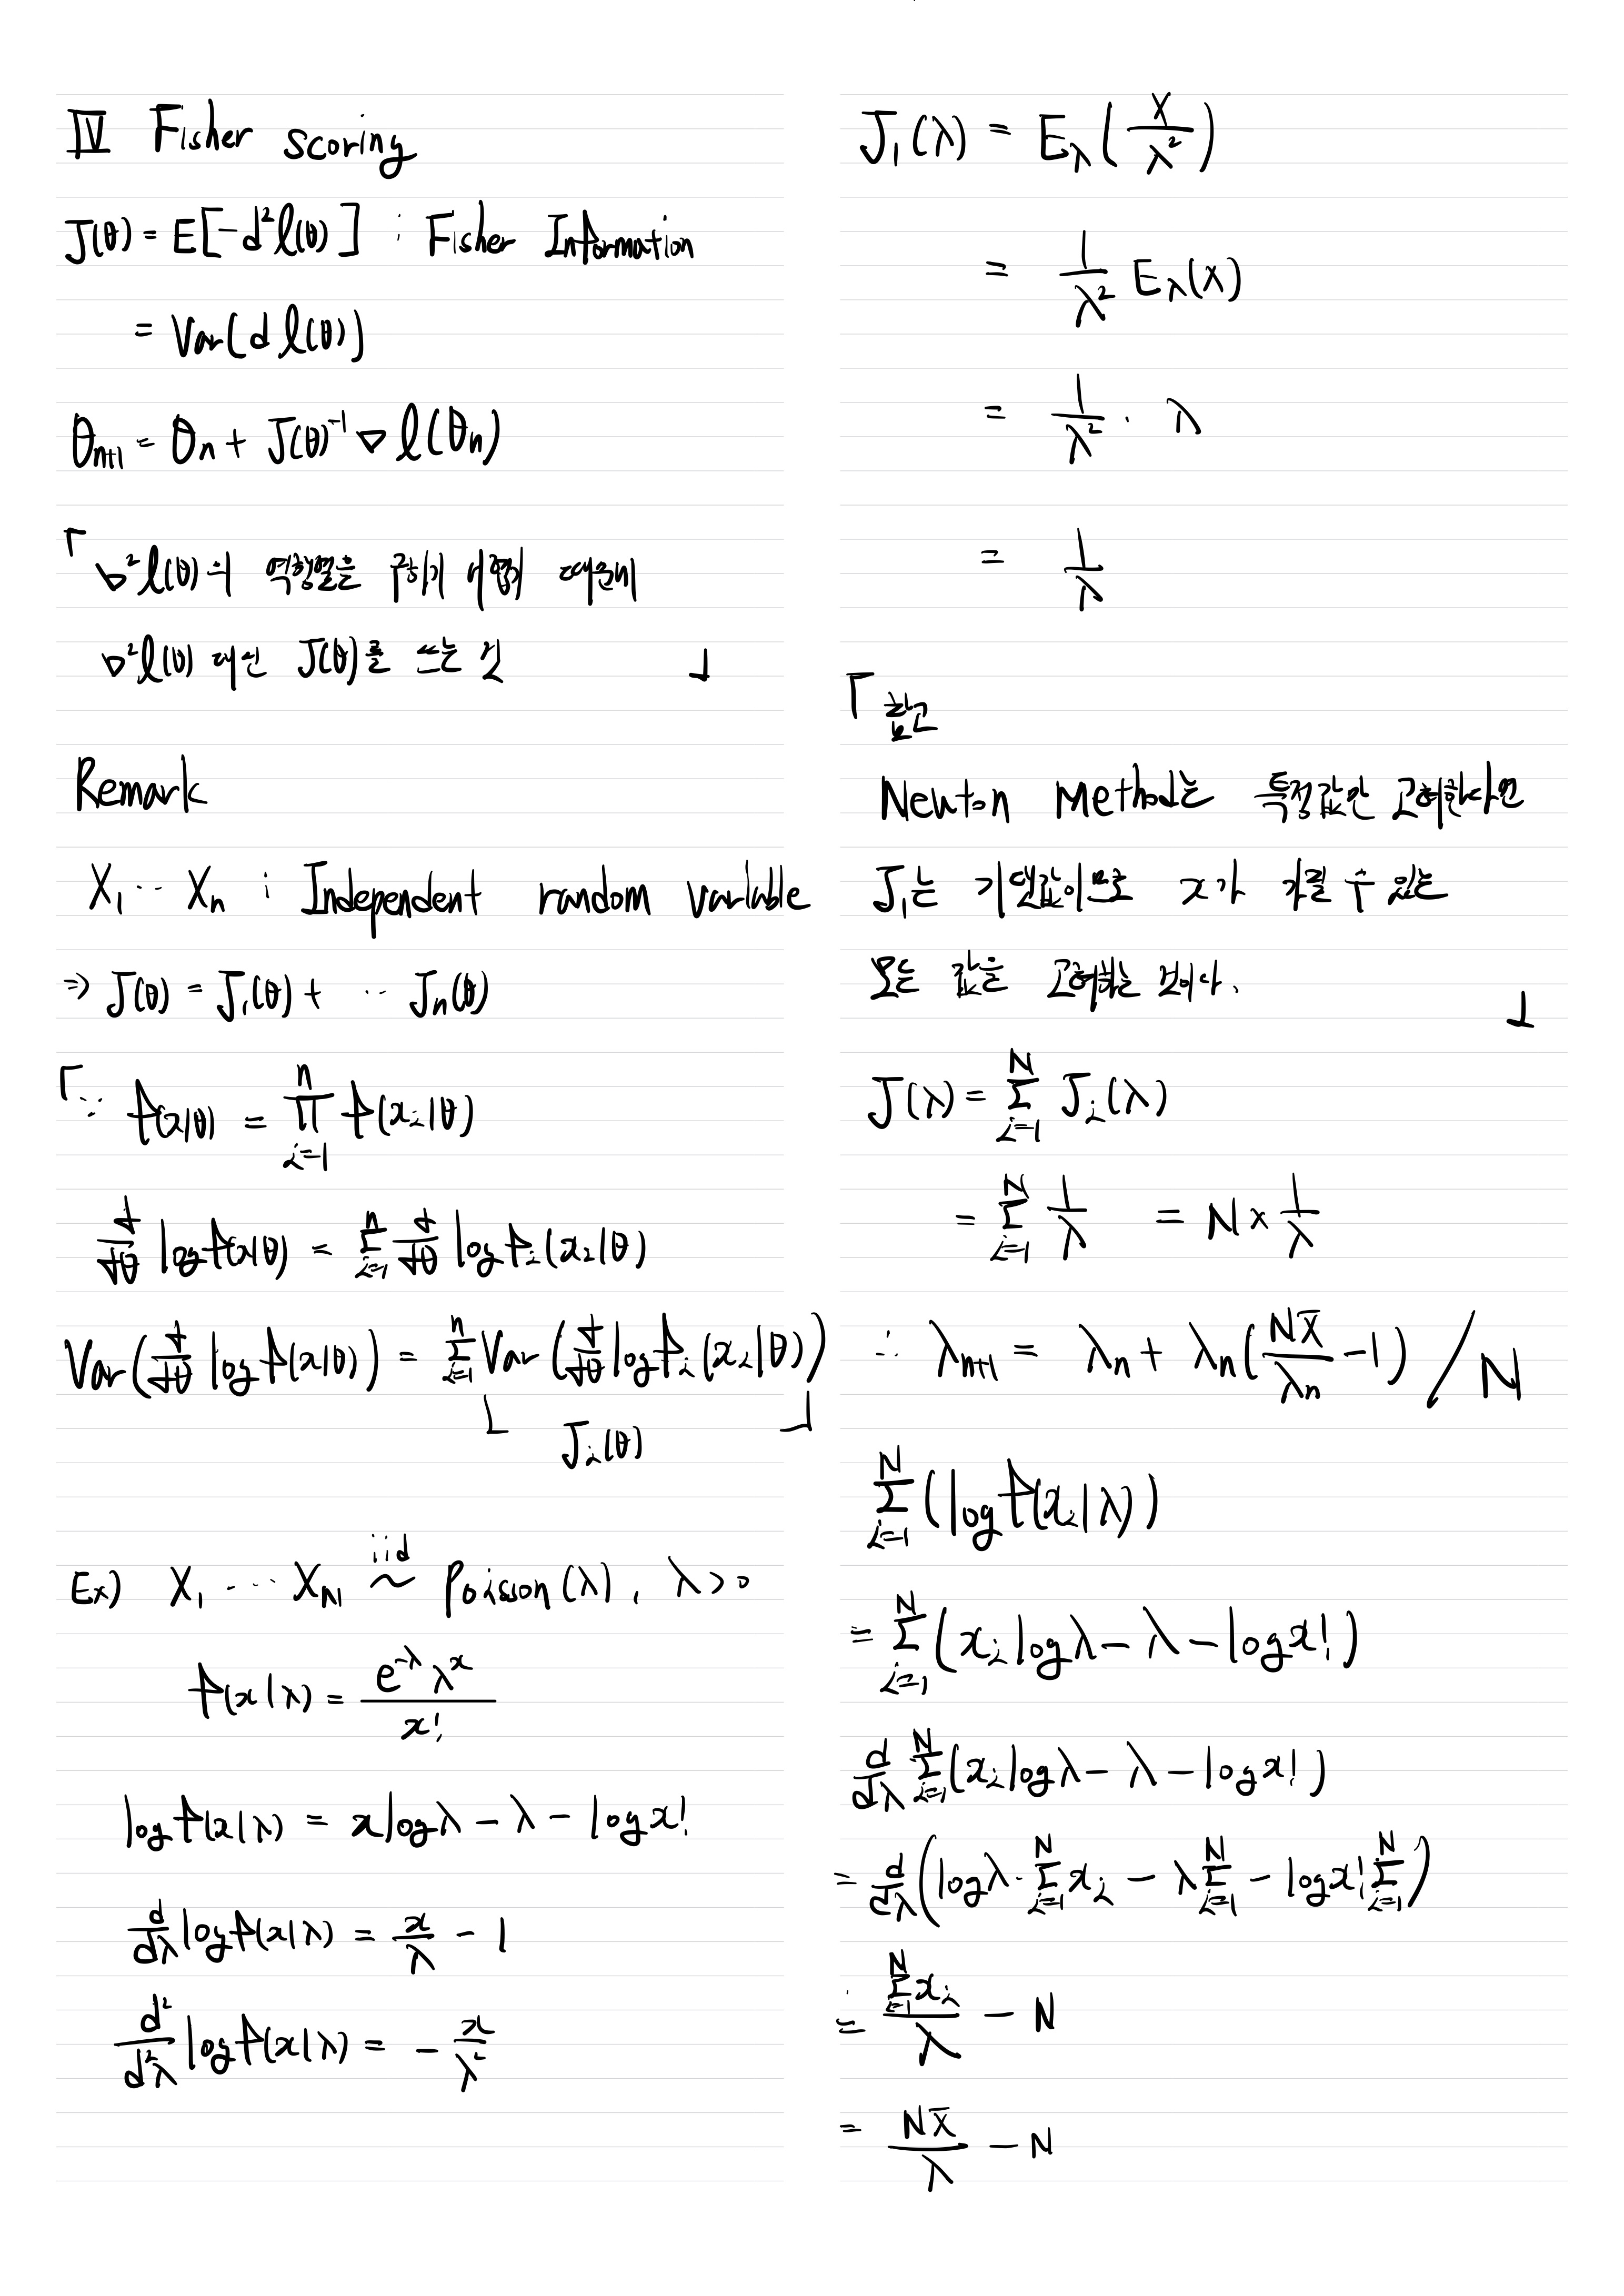 Ⅳ Fisher scoring
J(θ) = E[-d²l(θ)] : Fisher Information
= Var(d l(θ))
θn+1 = θn + J(θ)⁻¹ ∇ l(θn)
「 ∇²l(θ)의 역행렬을 구하기 어렵기 때문에
∇²l(θ) 대신 J(θ)를 쓰는 것 」
Remark
X₁ ·· Xn : Independent random variable
⇒ J(θ) = J₁(θ) + ·· Jn(θ)
「 ∵ f(x|θ) = ∏_{i=1}^{n} f(xi|θ)
d/dθ log f(x|θ) = Σ_{i=1}^{n} d/dθ log fi(xi|θ)
Var(d/dθ log f(x|θ)) = Σ_{i=1}^{n} Var(d/dθ log fi(xi|θ))
Ji(θ) 」
Ex) X₁ ··· Xn iid ~ Poission(λ), λ>0
f(x|λ) = e^{-λ} λ^x / x!
log f(x|λ) = x log λ - λ - log x!
d/dλ log f(x|λ) = x/λ - 1
d²/d²λ log f(x|λ) = - x/λ²
J₁(λ) = Eλ(X/λ²)
= 1/λ² Eλ(X)
= 1/λ² · λ
= 1/λ
「 참고
Newton Method는 특정값만 고려한다면
J₁는 기댓값이므로 x가 가질 수 있는
모든 값을 고려하는 것이다. 」
J(λ) = Σ_{i=1}^{N} Ji(λ)
= Σ_{i=1}^{N} 1/λ = N × 1/λ
∴ λn+1 = λn + λn(NX̄/λn - 1) / N
Σ_{i=1}^{N} (log f(xi|λ))
= Σ_{i=1}^{N} (xi log λ - λ - log x!)
d/dλ Σ_{i=1}^{N} (xi log λ - λ - log x!)
= d/dλ (log λ · Σ_{i=1}^{N} xi - λ Σ_{i=1}^{N} - log x! Σ_{i=1}^{N})
= Σ_{i=1}^{N} xi / λ - N
= NX̄/λ - N